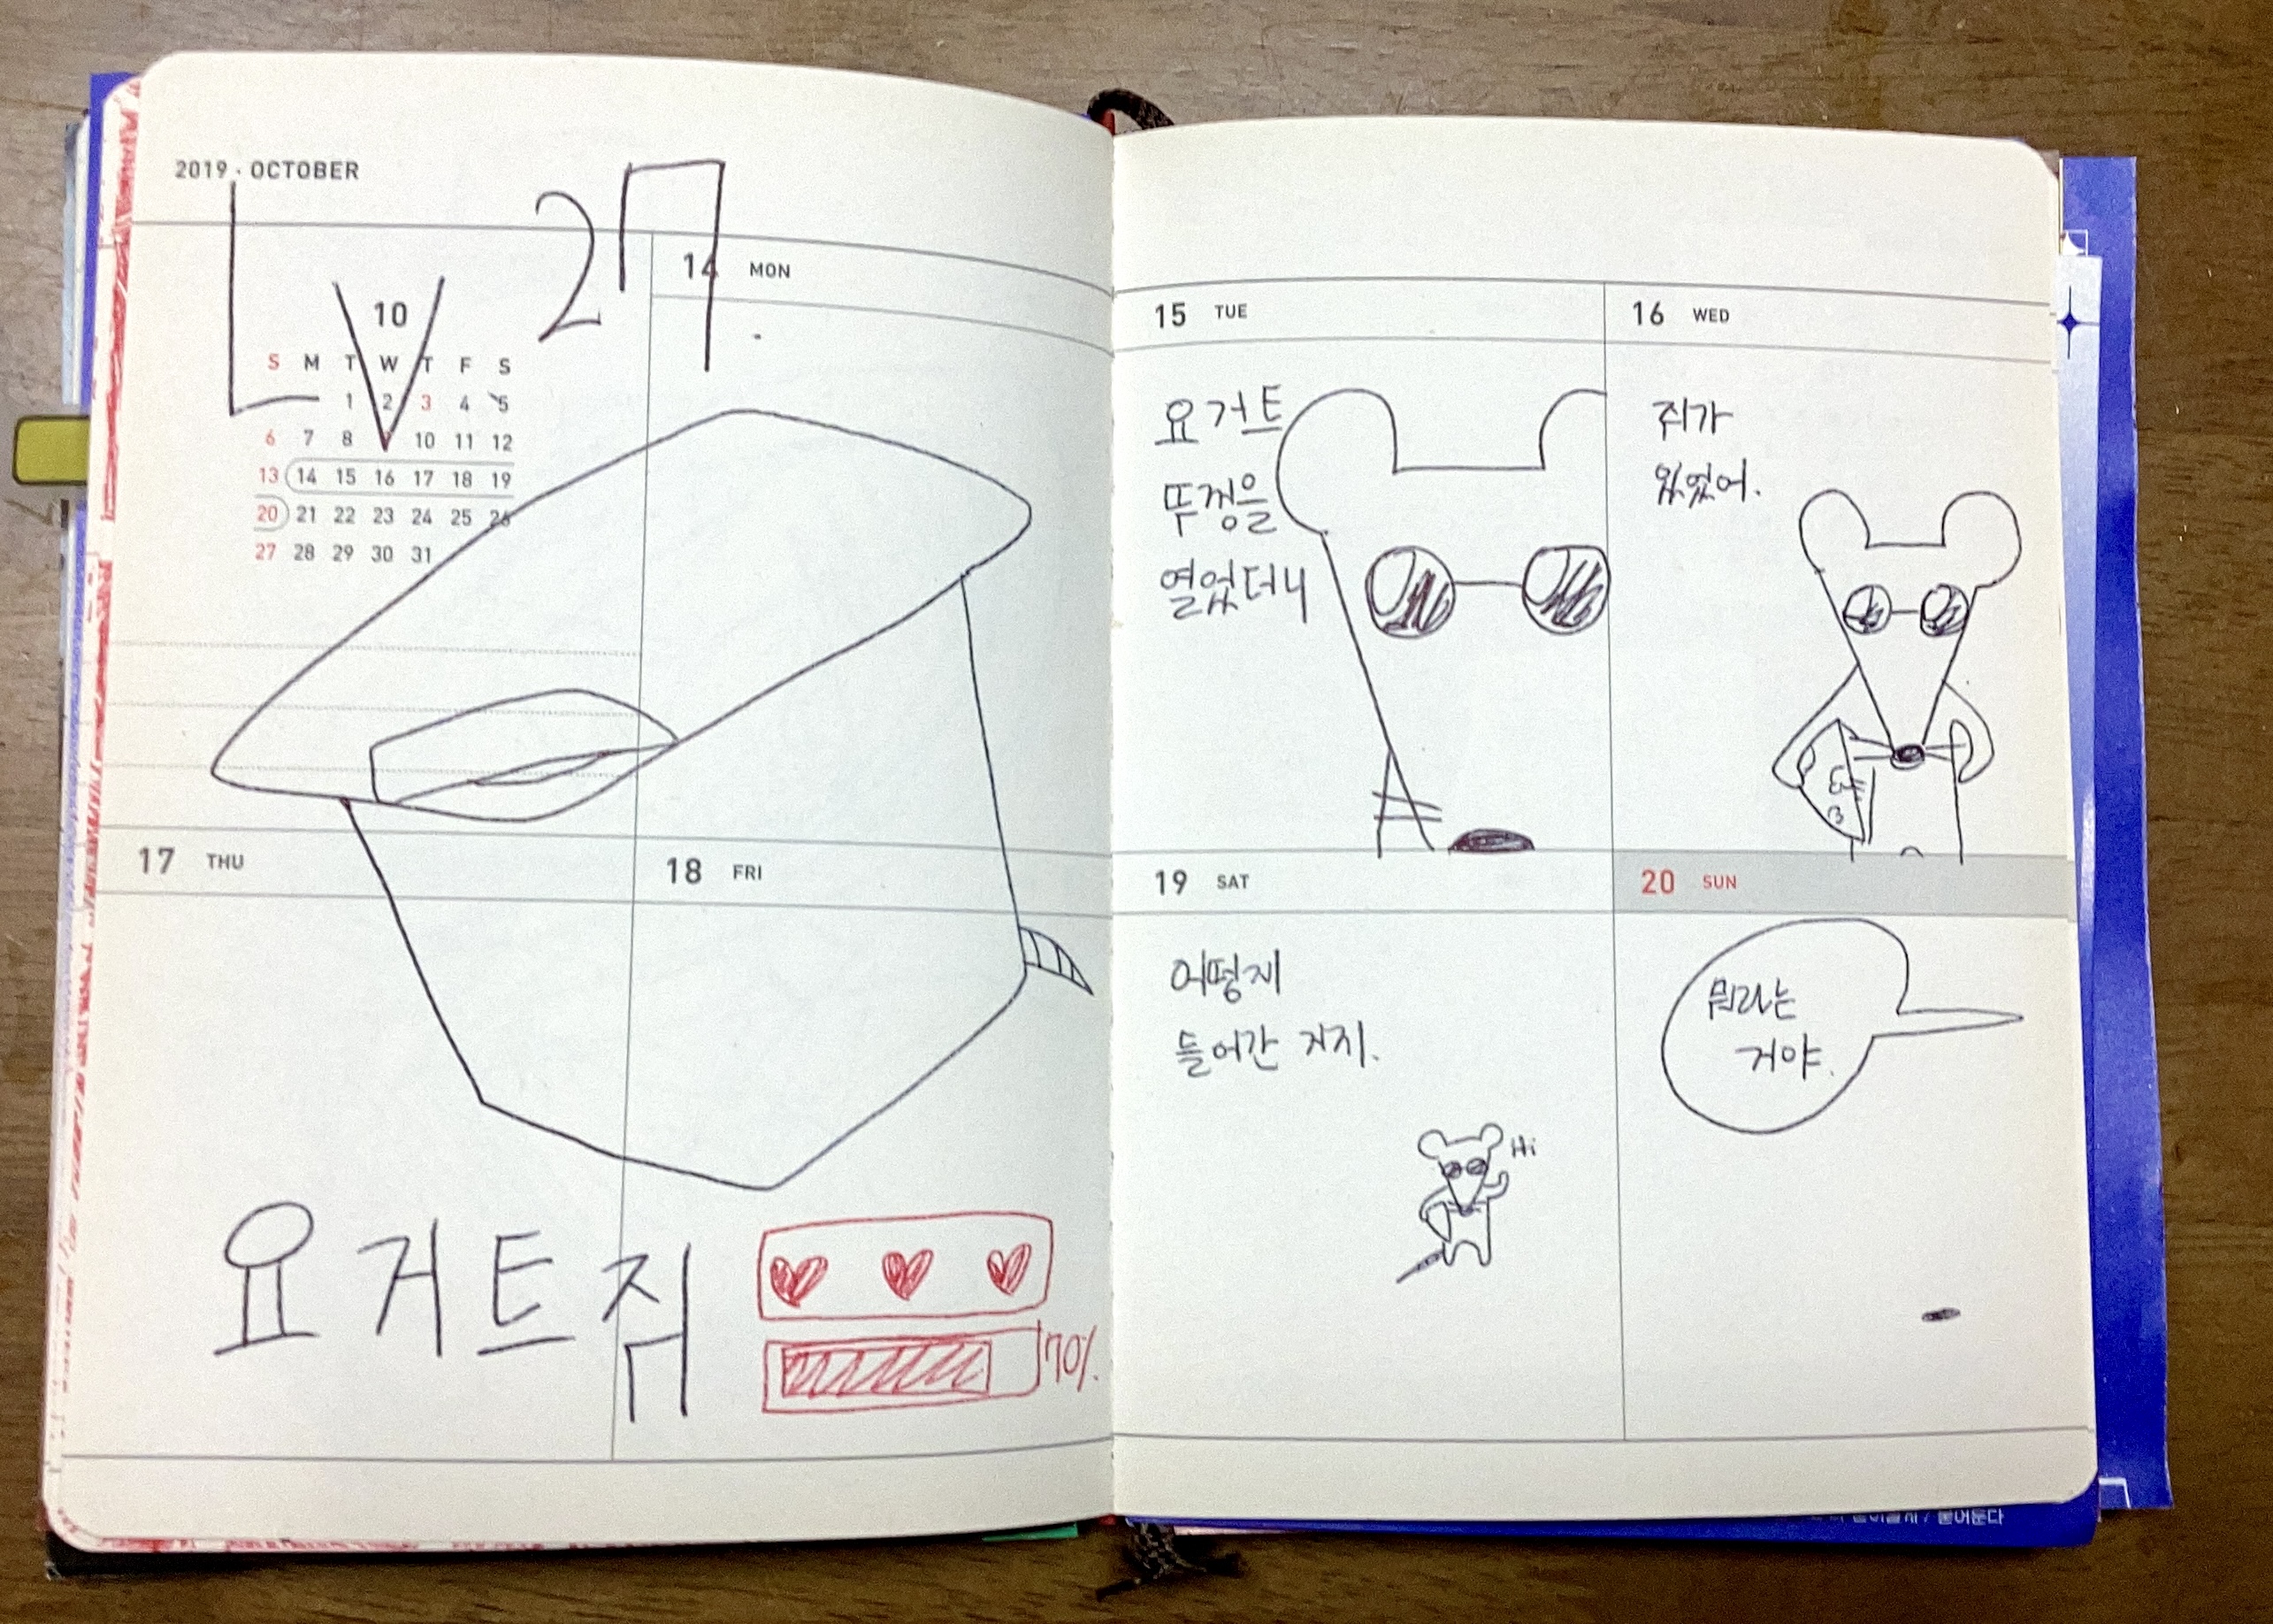 2019 · OCTOBER
LV 27
10
S M T W T F S
1 2 3 4 5
6 7 8 10 11 12
13 14 15 16 17 18 19
20 21 22 23 24 25 26
27 28 29 30 31
14 MON
17 THU
18 FRI
요거트집
70%
15 TUE
요거트
뚜껑을
열었더니
16 WED
쥐가
있었어.
19 SAT
어떻게
들어간 거지.
Hi
20 SUN
뭐라는
거야.